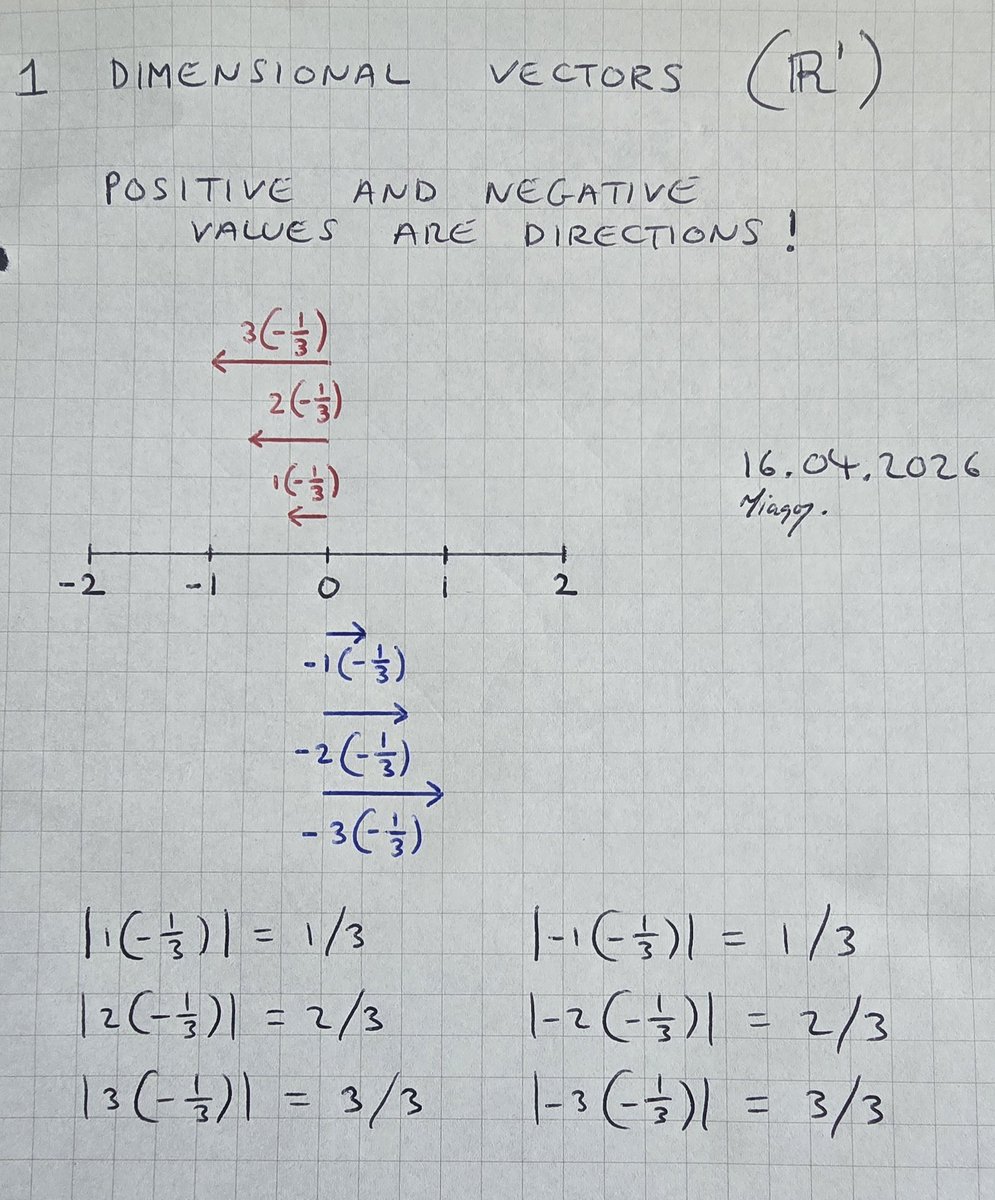 1 DIMENSIONAL VECTORS (ℝ¹)
POSITIVE AND NEGATIVE
VALUES ARE DIRECTIONS!
3(-1/3)
2(-1/3)
1(-1/3)
16.04.2026
-2 -1 0 1 2
-1(-1/3)
-2(-1/3)
-3(-1/3)
|1(-1/3)| = 1/3 |-1(-1/3)| = 1/3
|2(-1/3)| = 2/3 |-2(-1/3)| = 2/3
|3(-1/3)| = 3/3 |-3(-1/3)| = 3/3